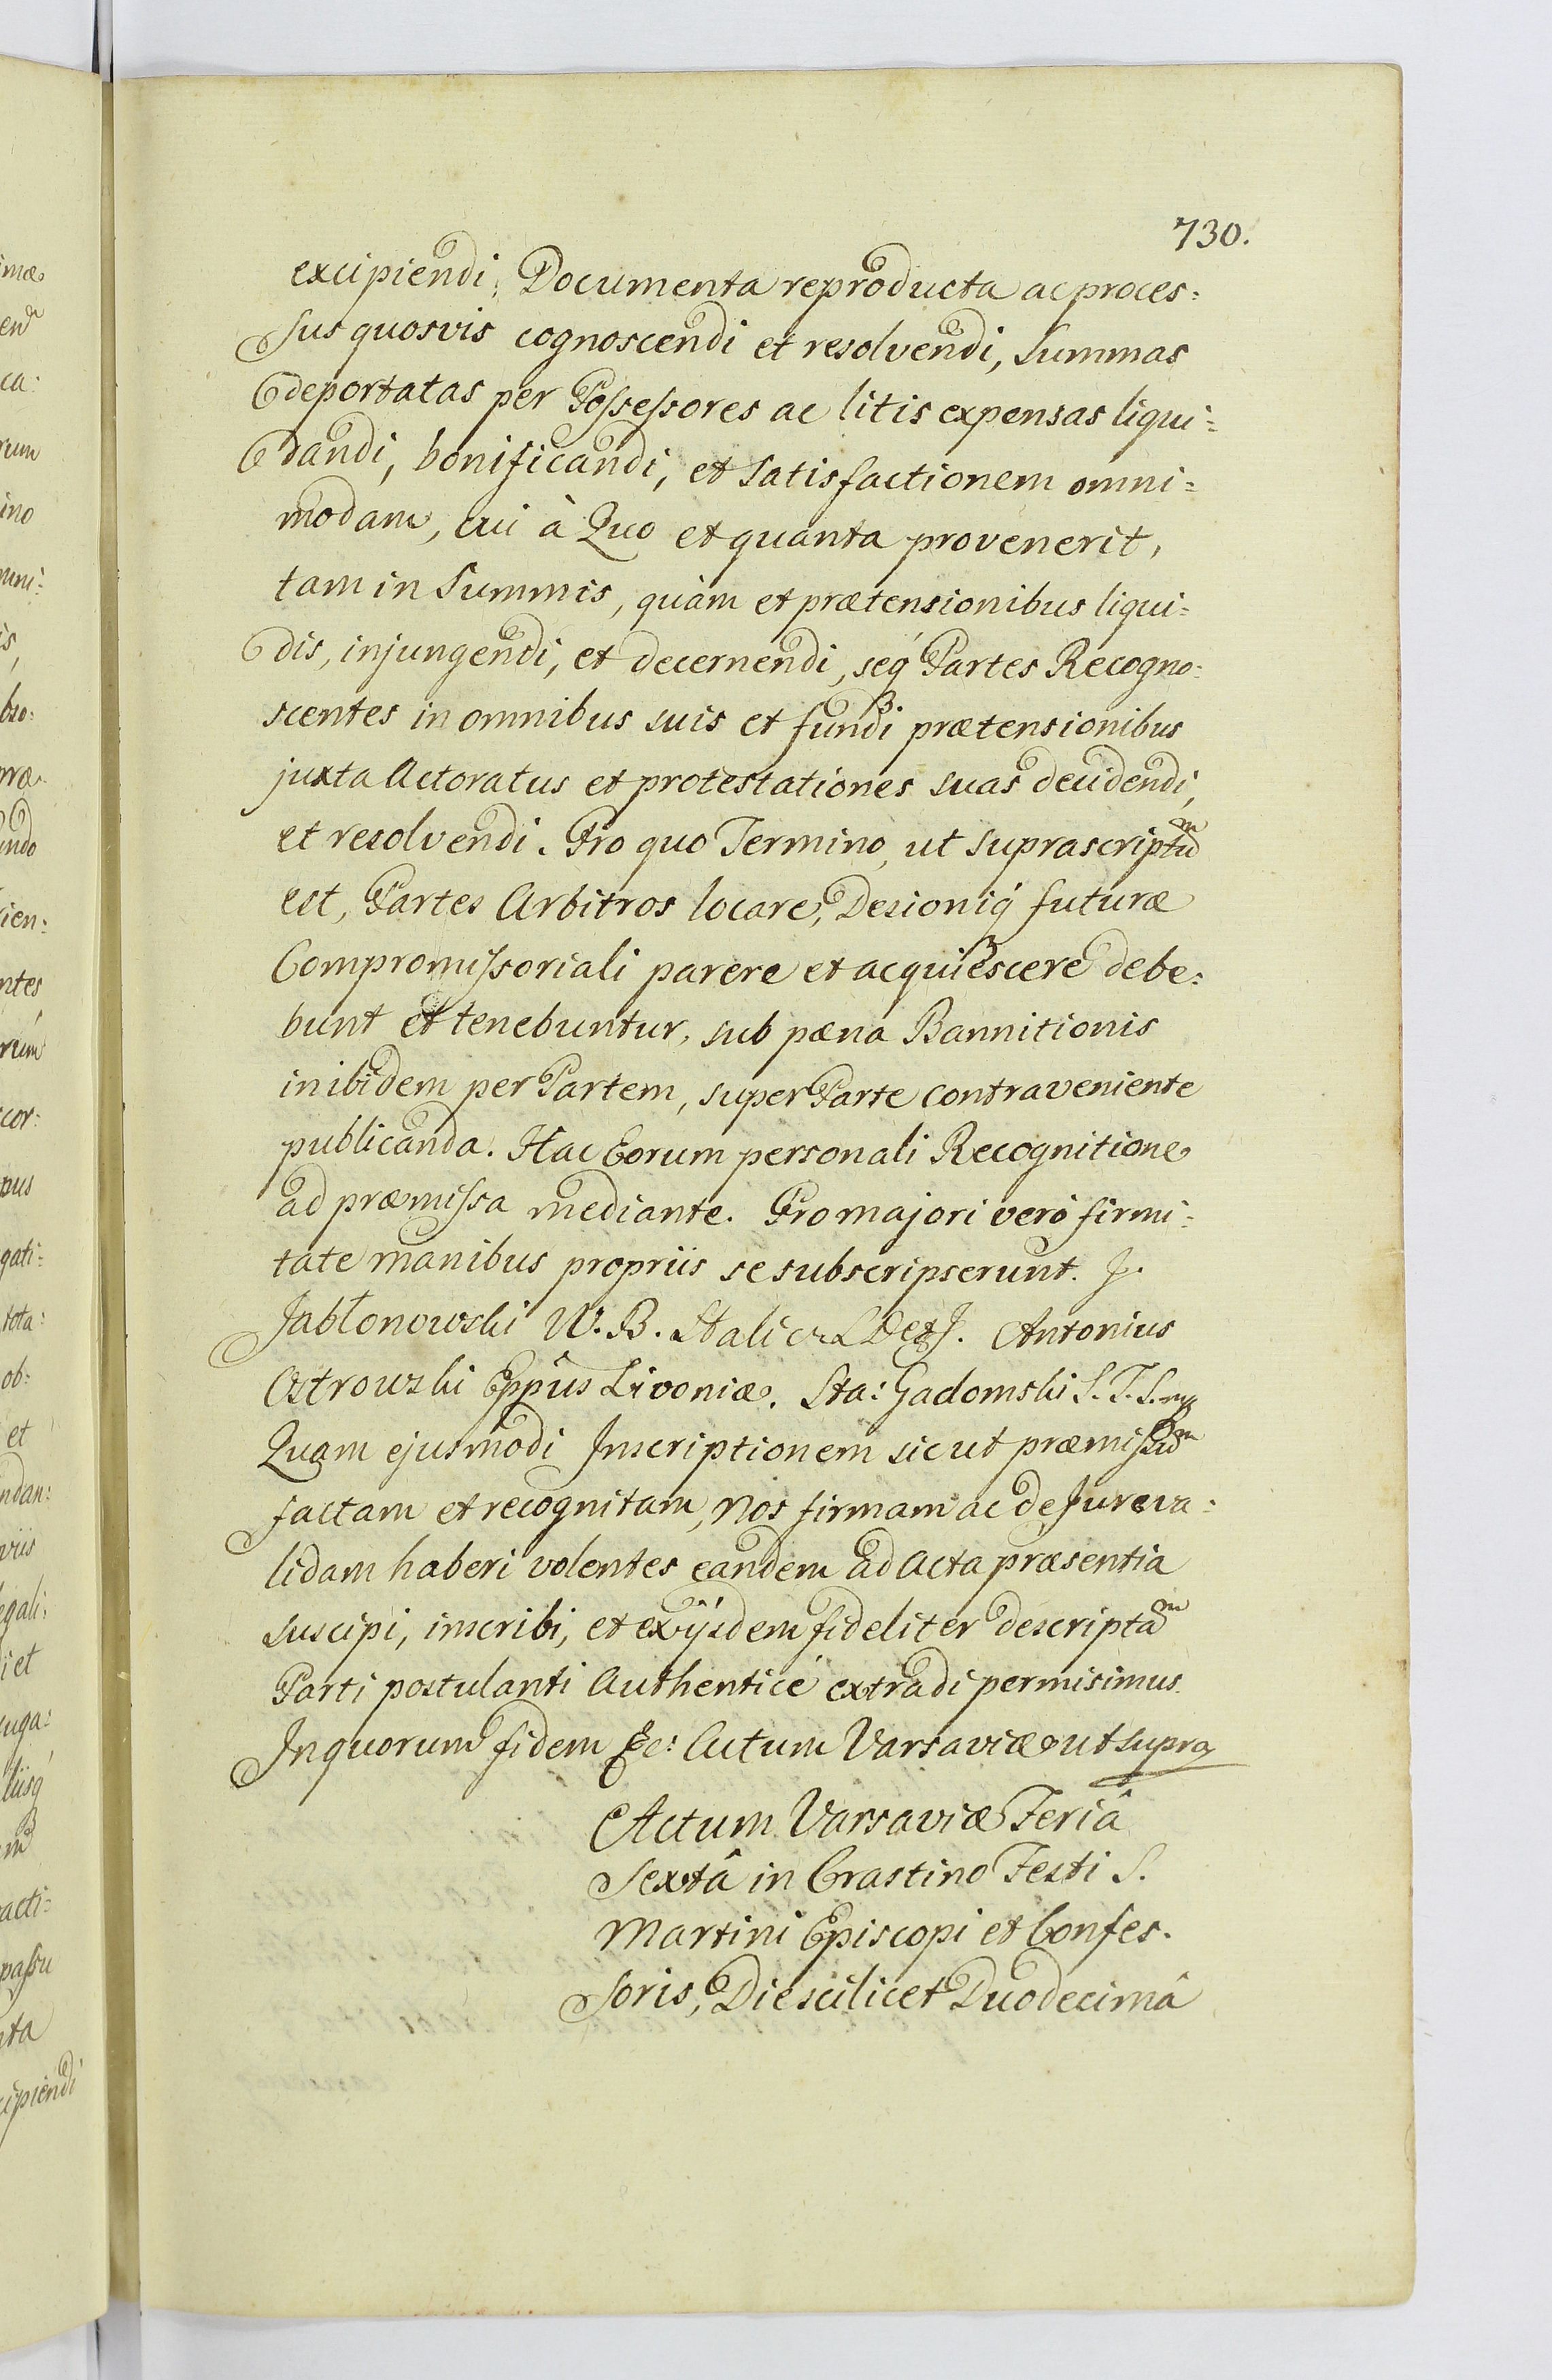 730.
excipiendi; Documenta reproducta ac proces=
sus quosvis cognoscendi et resolvendi, Summas
deportatas per Possessores ac litis expensas liqui=
dandi, bonificandi, et satisfactionem omni=
modam, cui à Quo et quanta provenerit,
tam in Summis, quàm et prætensionibus liqui=
dis, injungendi, et decernendi, seq́ Partes Recogno=
scentes in omnibus suis et fundi prætensionibus
juxta Actoratus et protestationes suas decidendi,
et resolvendi. Pro quo Termino, ut suprascriptuᵐ
est, Partes Arbitros locare, Desioniq́ futuræ
Compromissoriali parere et acquiescere debe=
bunt et tenebuntur, sub pæna Bannitionis
inibidem per Partem, super Parte contraveniente
publicanda. Hac Eorum personali Recognitione
ad præmissa mediante. Pro majori verò firmi=
tate manibus propriis se subscripserunt. J.
Jabłonowski W. B. Antonius
Ostrowski Epp̂us Livoniæ. Sta: Gadomski S. T. S. mp
Quam ejusmodi Inscriptionem sic ut præmissuᵐ
factam et recognitam, Nos firmam ac de Jure va=
lidam haberi volentes eandem ad Acta præsentia
suscipi, inscribi, et ex ijsdem fideliter descriptaᵐ
Parti postulanti Authenticé extradi permisimus.
In quorum fidem &c: Actum Varsaviæ ut supra
Actum Varsaviæ Feriâ
Sextâ in Crastino Festi S.
Martini Episcopi et Confes=
soris, Die scilicet Duodecimâ
imæ
ca:
rum
ino
mni:
is,
bso:
præ
undo
ien:
ntes
rum
cor:
pus
gati=
tota:
ob=
et
ndan:
viis
egali:
i et
uga:
liisq́
acti=
passu
ta
cipiendi